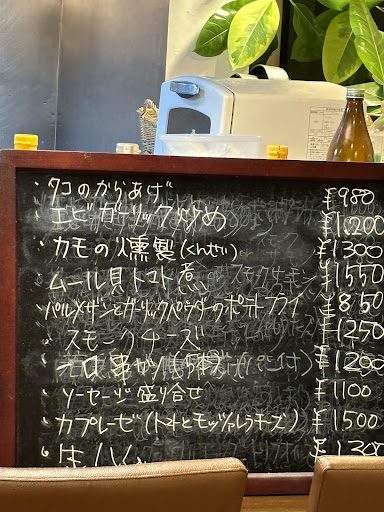 ・タコのからあげ ¥980
・エビガーリック炒め ¥1,200
・カモの燻製(くんせい) ¥1300
・ムール貝トマト煮 ¥1550
・パルメザンとガーリックパウダーのポテトフライ ¥850
・スモークチーズ ¥1250
・一口串カツ(5本) ¥1200
・ソーセージ盛り合せ ¥1100
・カプレーゼ(トマトとモッツァレラチーズ) ¥1500
・生ハム ¥1300